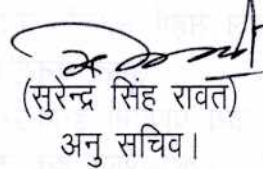 (सुरेन्द्र सिंह रावत)
अनु सचिव।